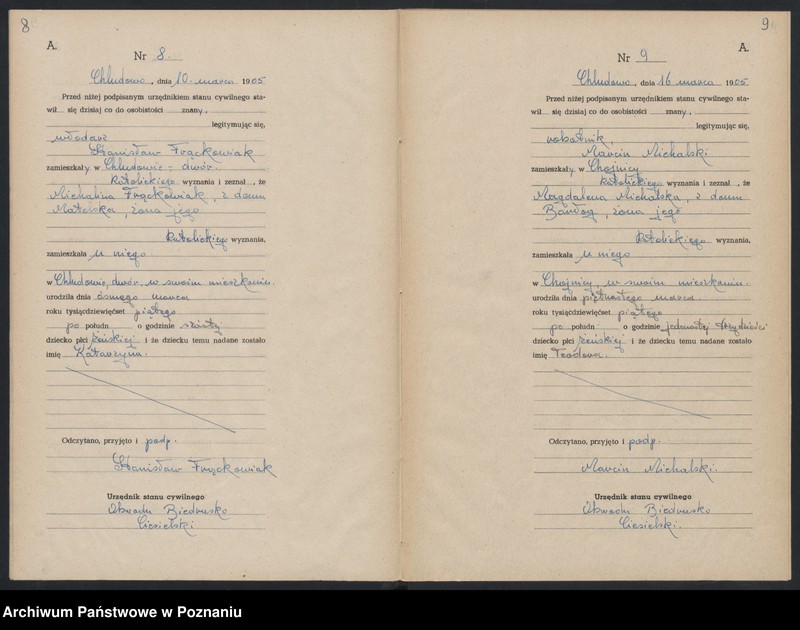 8
A.
Nr 8.
Chludowo, dnia 10. marca 1905
Przed niżej podpisanym urzędnikiem stanu cywilnego sta-
wił się dzisiaj co do osobistości znany,
legitymując się,
włodarz
Stanisław Frąckowiak
zamieszkały w Chludowie - dwór.
katolickiego wyznania i zeznał, że
Michalina Frąckowiak, z domu
żona jego
katolickiego wyznania,
zamieszkała u niego
w Chludowie, dwór, w swoim mieszkaniu.
urodziła dnia ósmego marca
roku tysiącdziewięćset piątego
po połudn o godzinie szóstej
dziecko płci żeńskiej i że dziecku temu nadane zostało
imię Katarzyna.
Odczytano, przyjęto i podp.
Stanisław Frąckowiak
Urzędnik stanu cywilnego
Obwodu Biedrusko
Ciesielski
9
A.
Nr 9
Chludowo, dnia 16 marca 1905
Przed niżej podpisanym urzędnikiem stanu cywilnego sta-
wił się dzisiaj co do osobistości znany,
legitymując się,
robotnik,
Marcin Michalski
zamieszkały w Chojnicy
katolickiego wyznania i zeznał, że
Magdalena Michalska, z domu
żona jego
katolickiego wyznania,
zamieszkała u niego
w Chojnicy, w swoim mieszkaniu.
urodziła dnia piętnastego marca.
roku tysiącdziewięćset piątego
po połudn o godzinie jedenastej trzydzieści
dziecko płci żeńskiej i że dziecku temu nadane zostało
imię Teodora.
Odczytano, przyjęto i podp.
Marcin Michalski.
Urzędnik stanu cywilnego
Obwodu Biedrusko
Ciesielski.
Archiwum Państwowe w Poznaniu